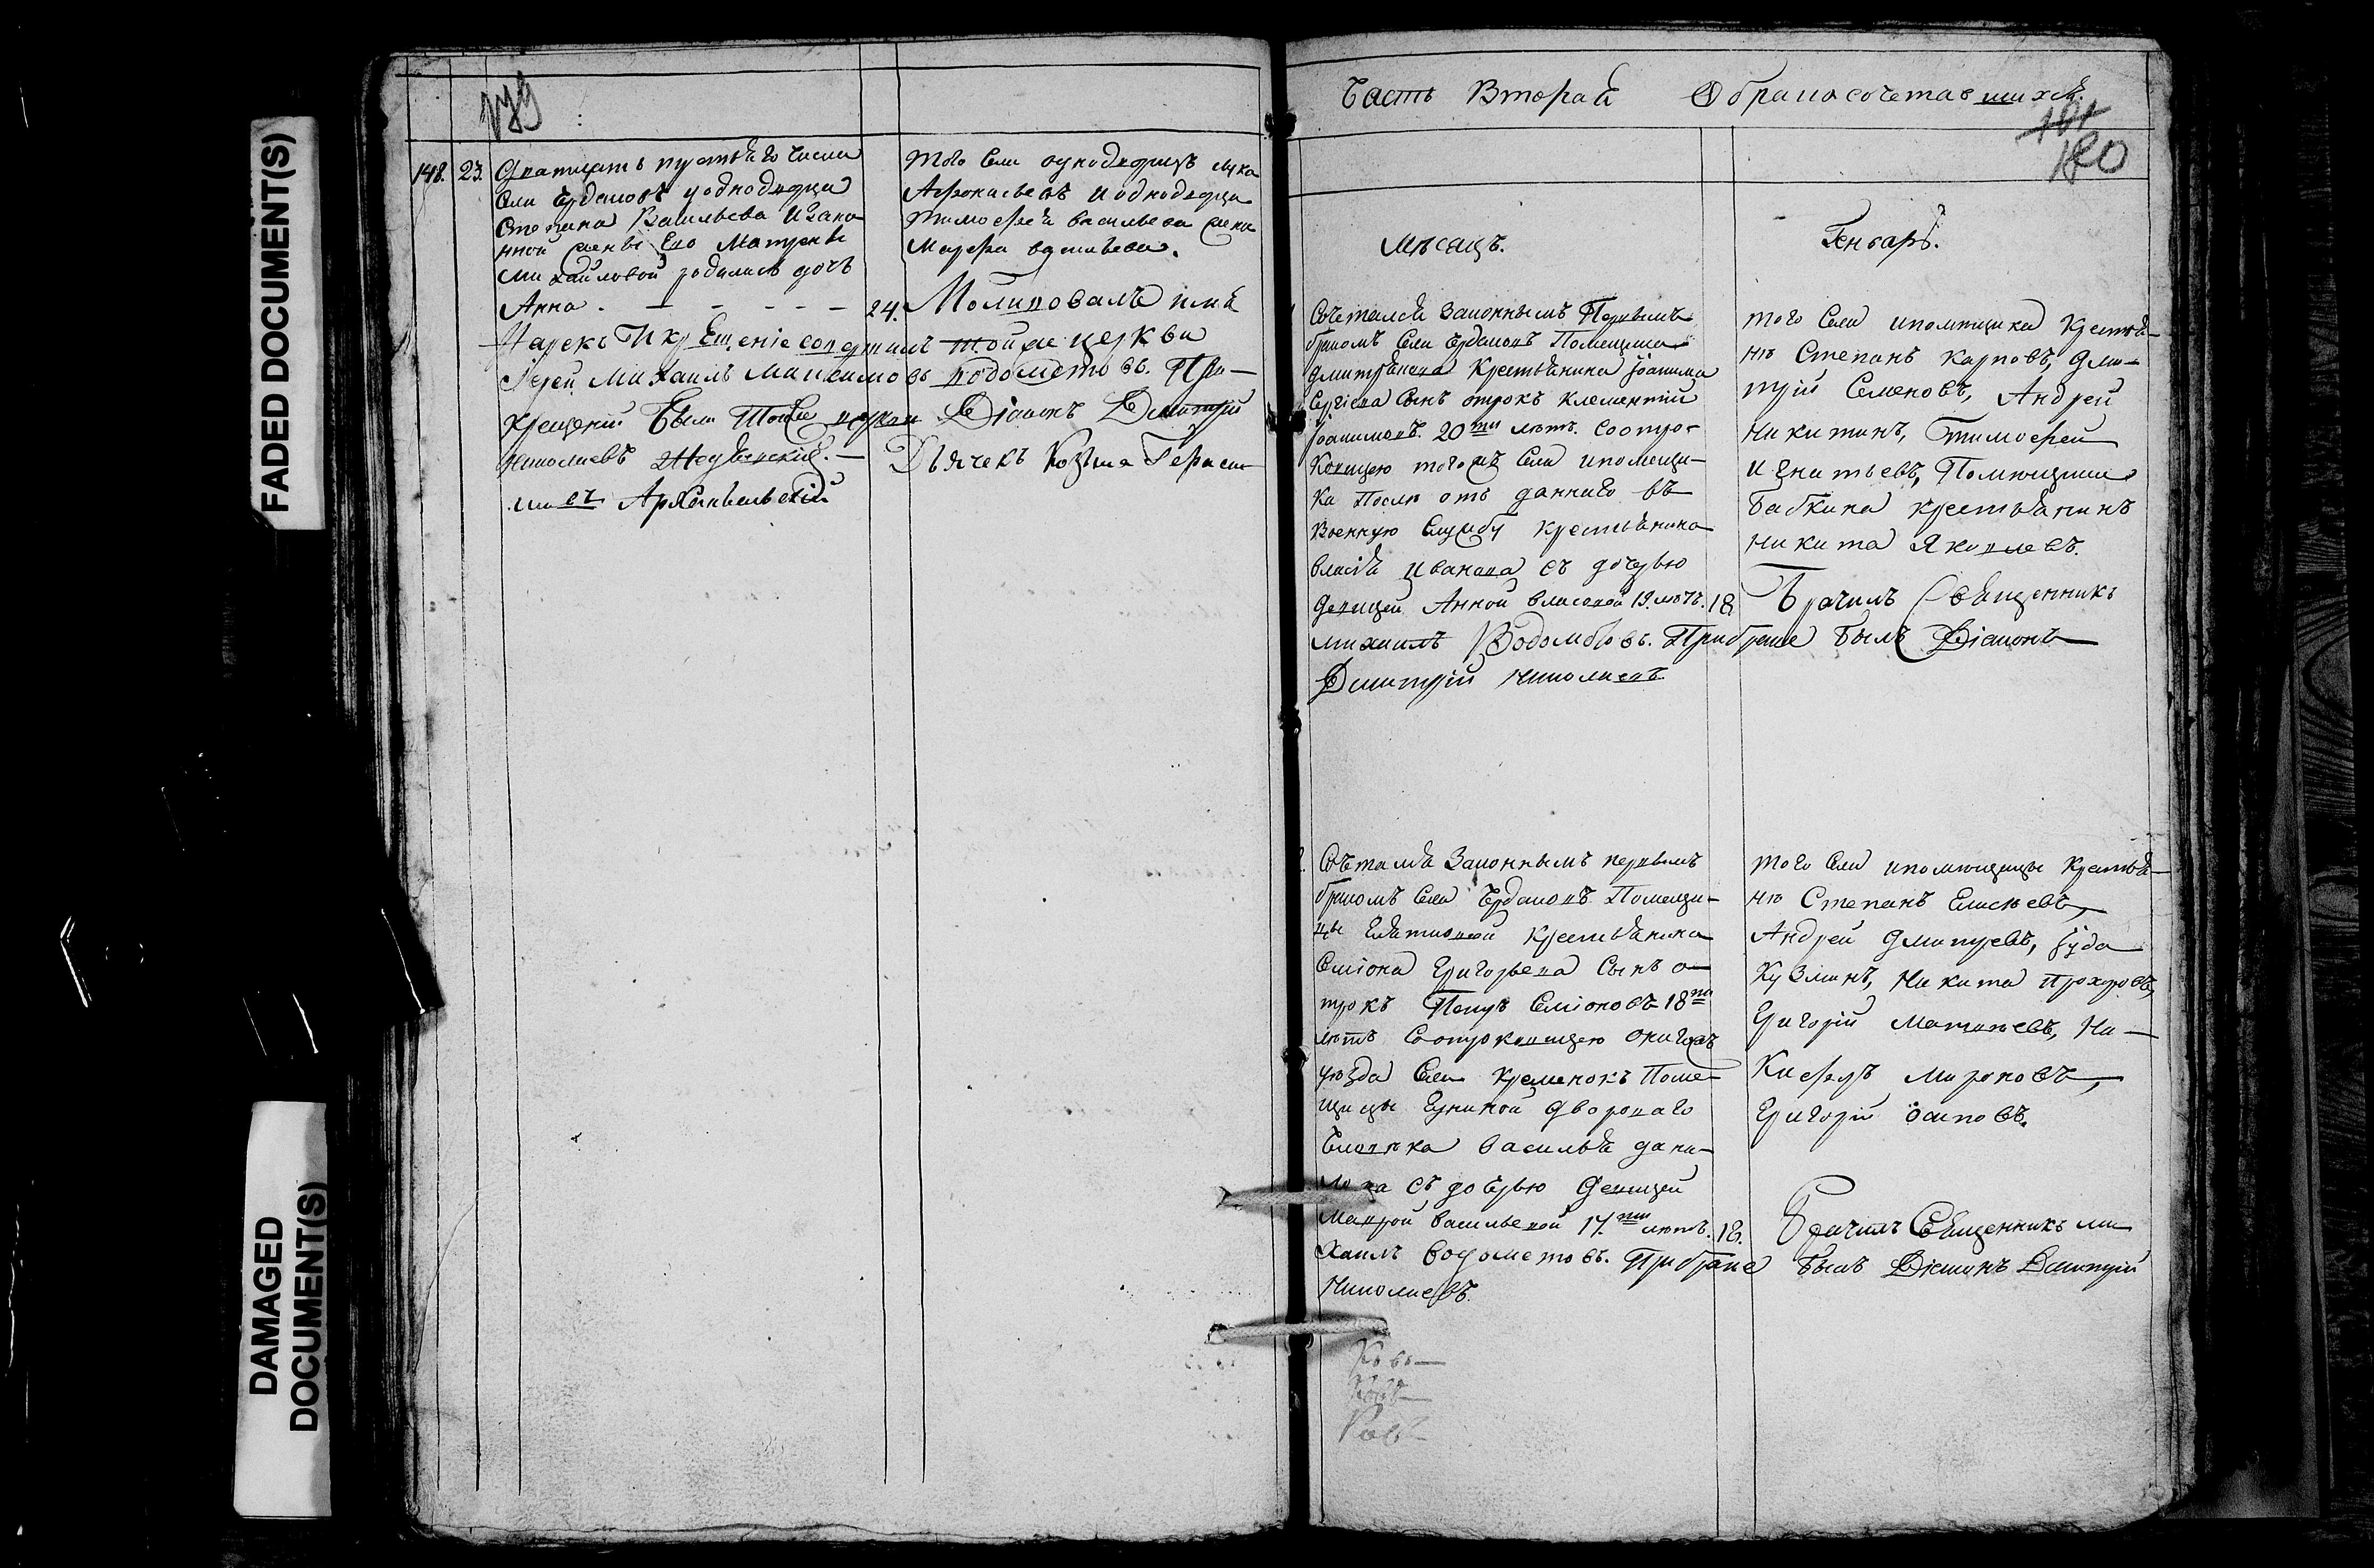 FADED DOCUMENT(S)
DAMAGED
DOCUMENT(S)
148. 23. Дватцать третьяго числа
Села Ердановъ уоднодворца
Степана Васильева изако
нной жены Его Матрены
Михайловой родилась дочь
Анна
того Села однодворецъ лука
Афонасьевъ иоднодворца
тимофея васильева жена
Марфа васильева.
24. Молитвовалъ имя
Нарекъ И крЕщеніе совершилъ тойже церкви
Іерей Михаилъ Максимовъ Водометовъ. При
крещеніи Были Тойже церкви Діаконъ Дмитрій
Николаевъ Дьячекъ Козьма Гераси
мовъ Архангельскій
Часть Вторая О бракосочетавшихся.
180
мѣсяцъ. Генварь.
Сочетался Законнымъ Первымъ
бракомъ Села Ердановъ Помещика
дмитріева Крестьянина Іоакима
Сергіева Сынъ отрокъ Климентій
Іоакимовъ. 20ти лѣтъ. Соотро
ковицею тогожъ Села ипомещи
ка После отъ даннаго въ
Военную Службу крестьянина
власія иванова съ дочерью
Девицей Анной власовой 19. лѣтъ. 18
того Села ипомещика крестья
не Степанъ карповъ, дми
трій Семеновъ, Андрей
Никитинъ, Тимофей
игнатьевъ, Помещика
Бабкина крестьянинъ
Никита Яковлевъ.
Брачилъ Священникъ
михаилъ Водометовъ. Прибраке былъ Діаконъ
Дмитрій Николаевъ
Сочетался Законнымъ первымъ
бракомъ Села Ердановъ Помещи
цы крестьянина
Сміона Григорьева Сынъ о
трокъ Петръ Сміоновъ 18ти
лѣтъ Соотроковицею онагожъ
уѣзда Села Кременокъ Поме
щицы двороваго
Человѣка василья дани
лова съ дочерью Девицей
Маврой васильевой 17.ти лѣтъ. 18.
того Села ипомещицы крестья
не Степанъ Елисѣевъ,
Андрей дмитревъ, Іуда
Кузминъ, Никита прохоровъ,
Григорій Матвѣевъ, Ни
Кифоръ мироновъ,
Григорій осиповъ.
Брачилъ Священникъ ми
хаилъ водометовъ. Прибраке былъ Діаконъ Дмитрій
Николаевъ.